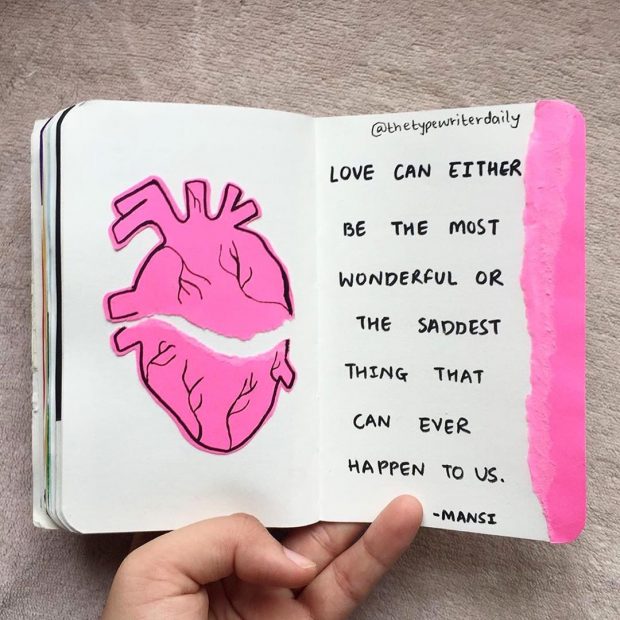 @thetypewriterdaily
LOVE CAN EITHER
BE THE MOST
WONDERFUL OR
THE SADDEST
THING THAT
CAN EVER
HAPPEN TO US.
-MANSI